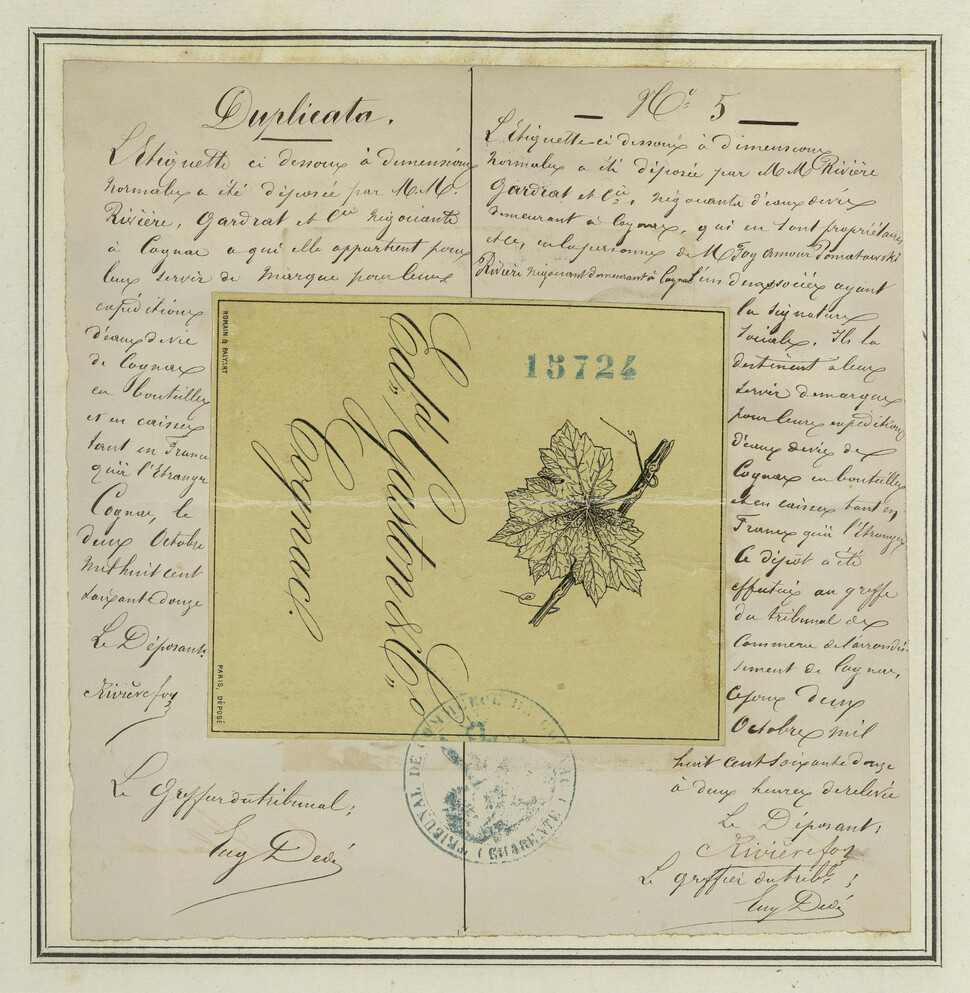 Duplicata.
L'Etiquette ci dessous à dimensions
normales a été déposée par M.M.
Rivière, Gardrat et Cie Négociants
à Cognac a qui elle appartient pour
leur servir de marque pour leurs
expéditions
d'eaux de vie
de Cognac
en bouteilles
et en caisses
tant en France
qu'à l'Etranger
Cognac, le
deux Octobre
mil huit cent
soixante douze
Le Déposant:
Rivière foy
Le Greffier du tribunal;
Eug Dedé
No 5
L'Etiquette ci dessous à dimensions
normales a été déposée par M M Rivière
Gardrat et Cie, négociants d'eaux de vie
demeurant à Cognac, qui en sont propriétaires
et ce, en la personne de M Foy Amour
Rivière négociant demeurant à Cognac l'un des associés ayant
la signature
sociale. Ils la
destinent à leur
servir de marque
pour leurs expéditions
d'eaux de vie de
Cognac en bouteilles
et en caisses tant en
France qu'à l'Etranger
Ce dépôt a été
effectué au greffe
du tribunal de
Commerce de l'arrondis-
sement de Cognac,
ce jour deux
Octobre mil
huit cent soixante douze
à deux heures de relevée
Le Déposant:
Rivière foy
Le greffier du tribal;
Eug Dedé
15724
Edd. Gaston & Co.
Cognac.
ROMAIN & PALYART
PARIS, DÉPOSÉ
TRIBUNAL DE COMMERCE DE COGNAC
(CHARENTE)